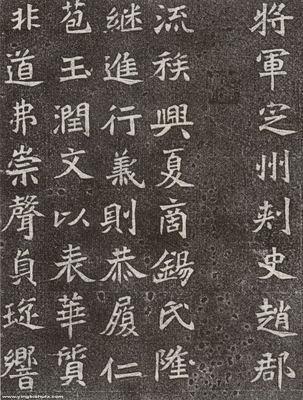 將軍定州刺史趙郡
流興夏商錫氏隆
繼進行義則恭履仁
苞玉潤文以表華質
非道弗崇聲貞響